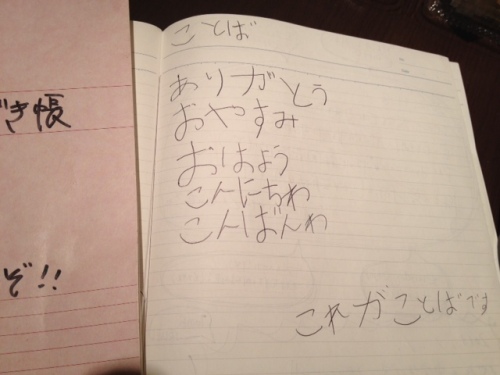 き帳
ぞ!!
ことば
ありガとう
おやすみ
おはよう
こんにちわ
こんばんわ
これがことばです